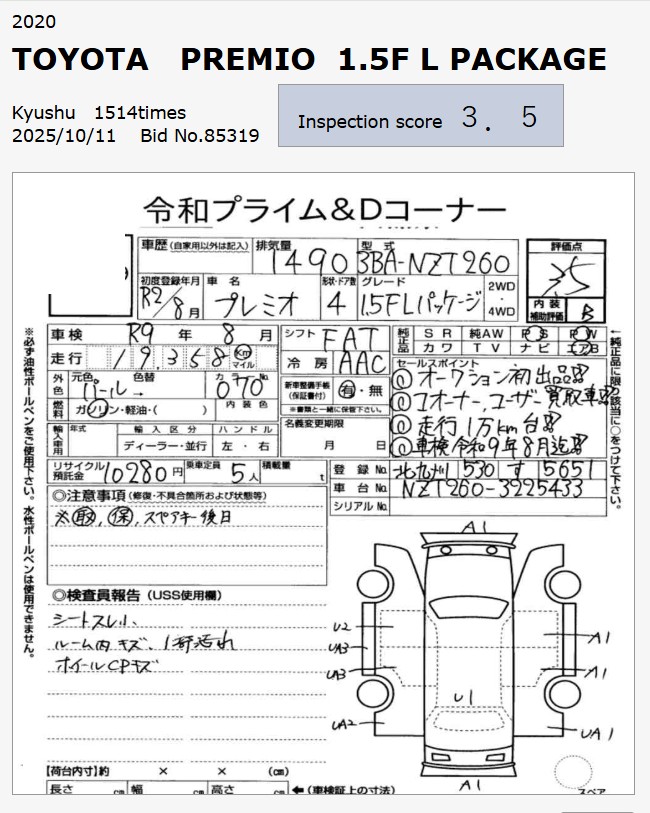 2020
TOYOTA PREMIO 1.5F L PACKAGE
Kyushu 1514times
2025/10/11 Bid No.85319
Inspection score 3. 5
令和プライム&Dコーナー
車歴(自家用以外は記入) 排気量 1490 型式 3BA-NZT260
評価点 3.5
初度登録年月 R2/8月 車名 プレミオ 形状・ドア数 4 グレード 1.5F Lパッケージ 2WD・4WD
内装補助評価 B
車検 R9年8月 シフト FAT 純正品 SR 純AW PS PW
走行 19,358 Km マイル 冷房 AAC カワ TV ナビ エアB
外色 元色 パール 色替 カラーNo. 070
燃料 ガソリン・軽油・( ) 内装色
新車整備手帳(保証書付) 有・無
※書類と一緒に保管下さい。
セールスポイント
①オークション初出品!!
①1オーナー、ユーザー買取車!!
①走行1万km台!!
①車検令和9年8月迄!!
輸入車用 年式 輸入区分 ハンドル
ディーラー・並行 左・右
名義変更期限 月 日
リサイクル預託金 10280円 乗車定員 5人 積載量 t
登録No. 北九州 530 す 5651
車台No. NZT260-3225433
シリアルNo.
◎注意事項(修復・不具合箇所および状態等)
※取, 保, スペアキー後日
◎検査員報告(USS使用欄)
シートスレ小
ルーム内キズ、1部汚れ
ホイールCPキズ
A1
U2
UA3
UA3
UA2
A1
A1
UA1
U1
A1
スペア
【荷台内寸】約 × × (cm)
長さ cm 幅 cm 高さ cm ←(車検証上の寸法)
※必ず油性ボールペンをご使用下さい。水性ボールペンは使用できません。
←純正品に限り該当に○をつけて下さい。